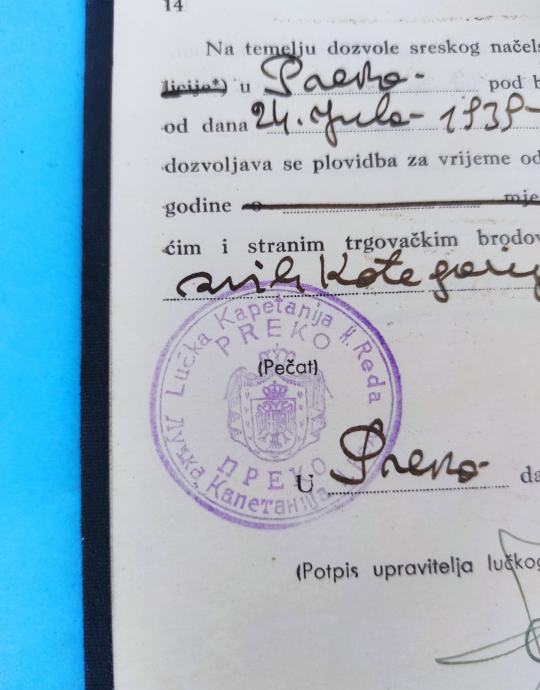 14
Na temelju dozvole sreskog načels
licije*) u Preko - pod b
od dana 24. Jula - 1939 -
dozvoljava se plovidba za vrijeme od
godine o mje
ćim i stranim trgovačkim brodov
svih kategorij
Lučka Kapetanija II. Reda
PREKO
(Pečat)
ПРЕКО
Лучка Капетанија
U Preko - da
(Potpis upravitelja lučkog